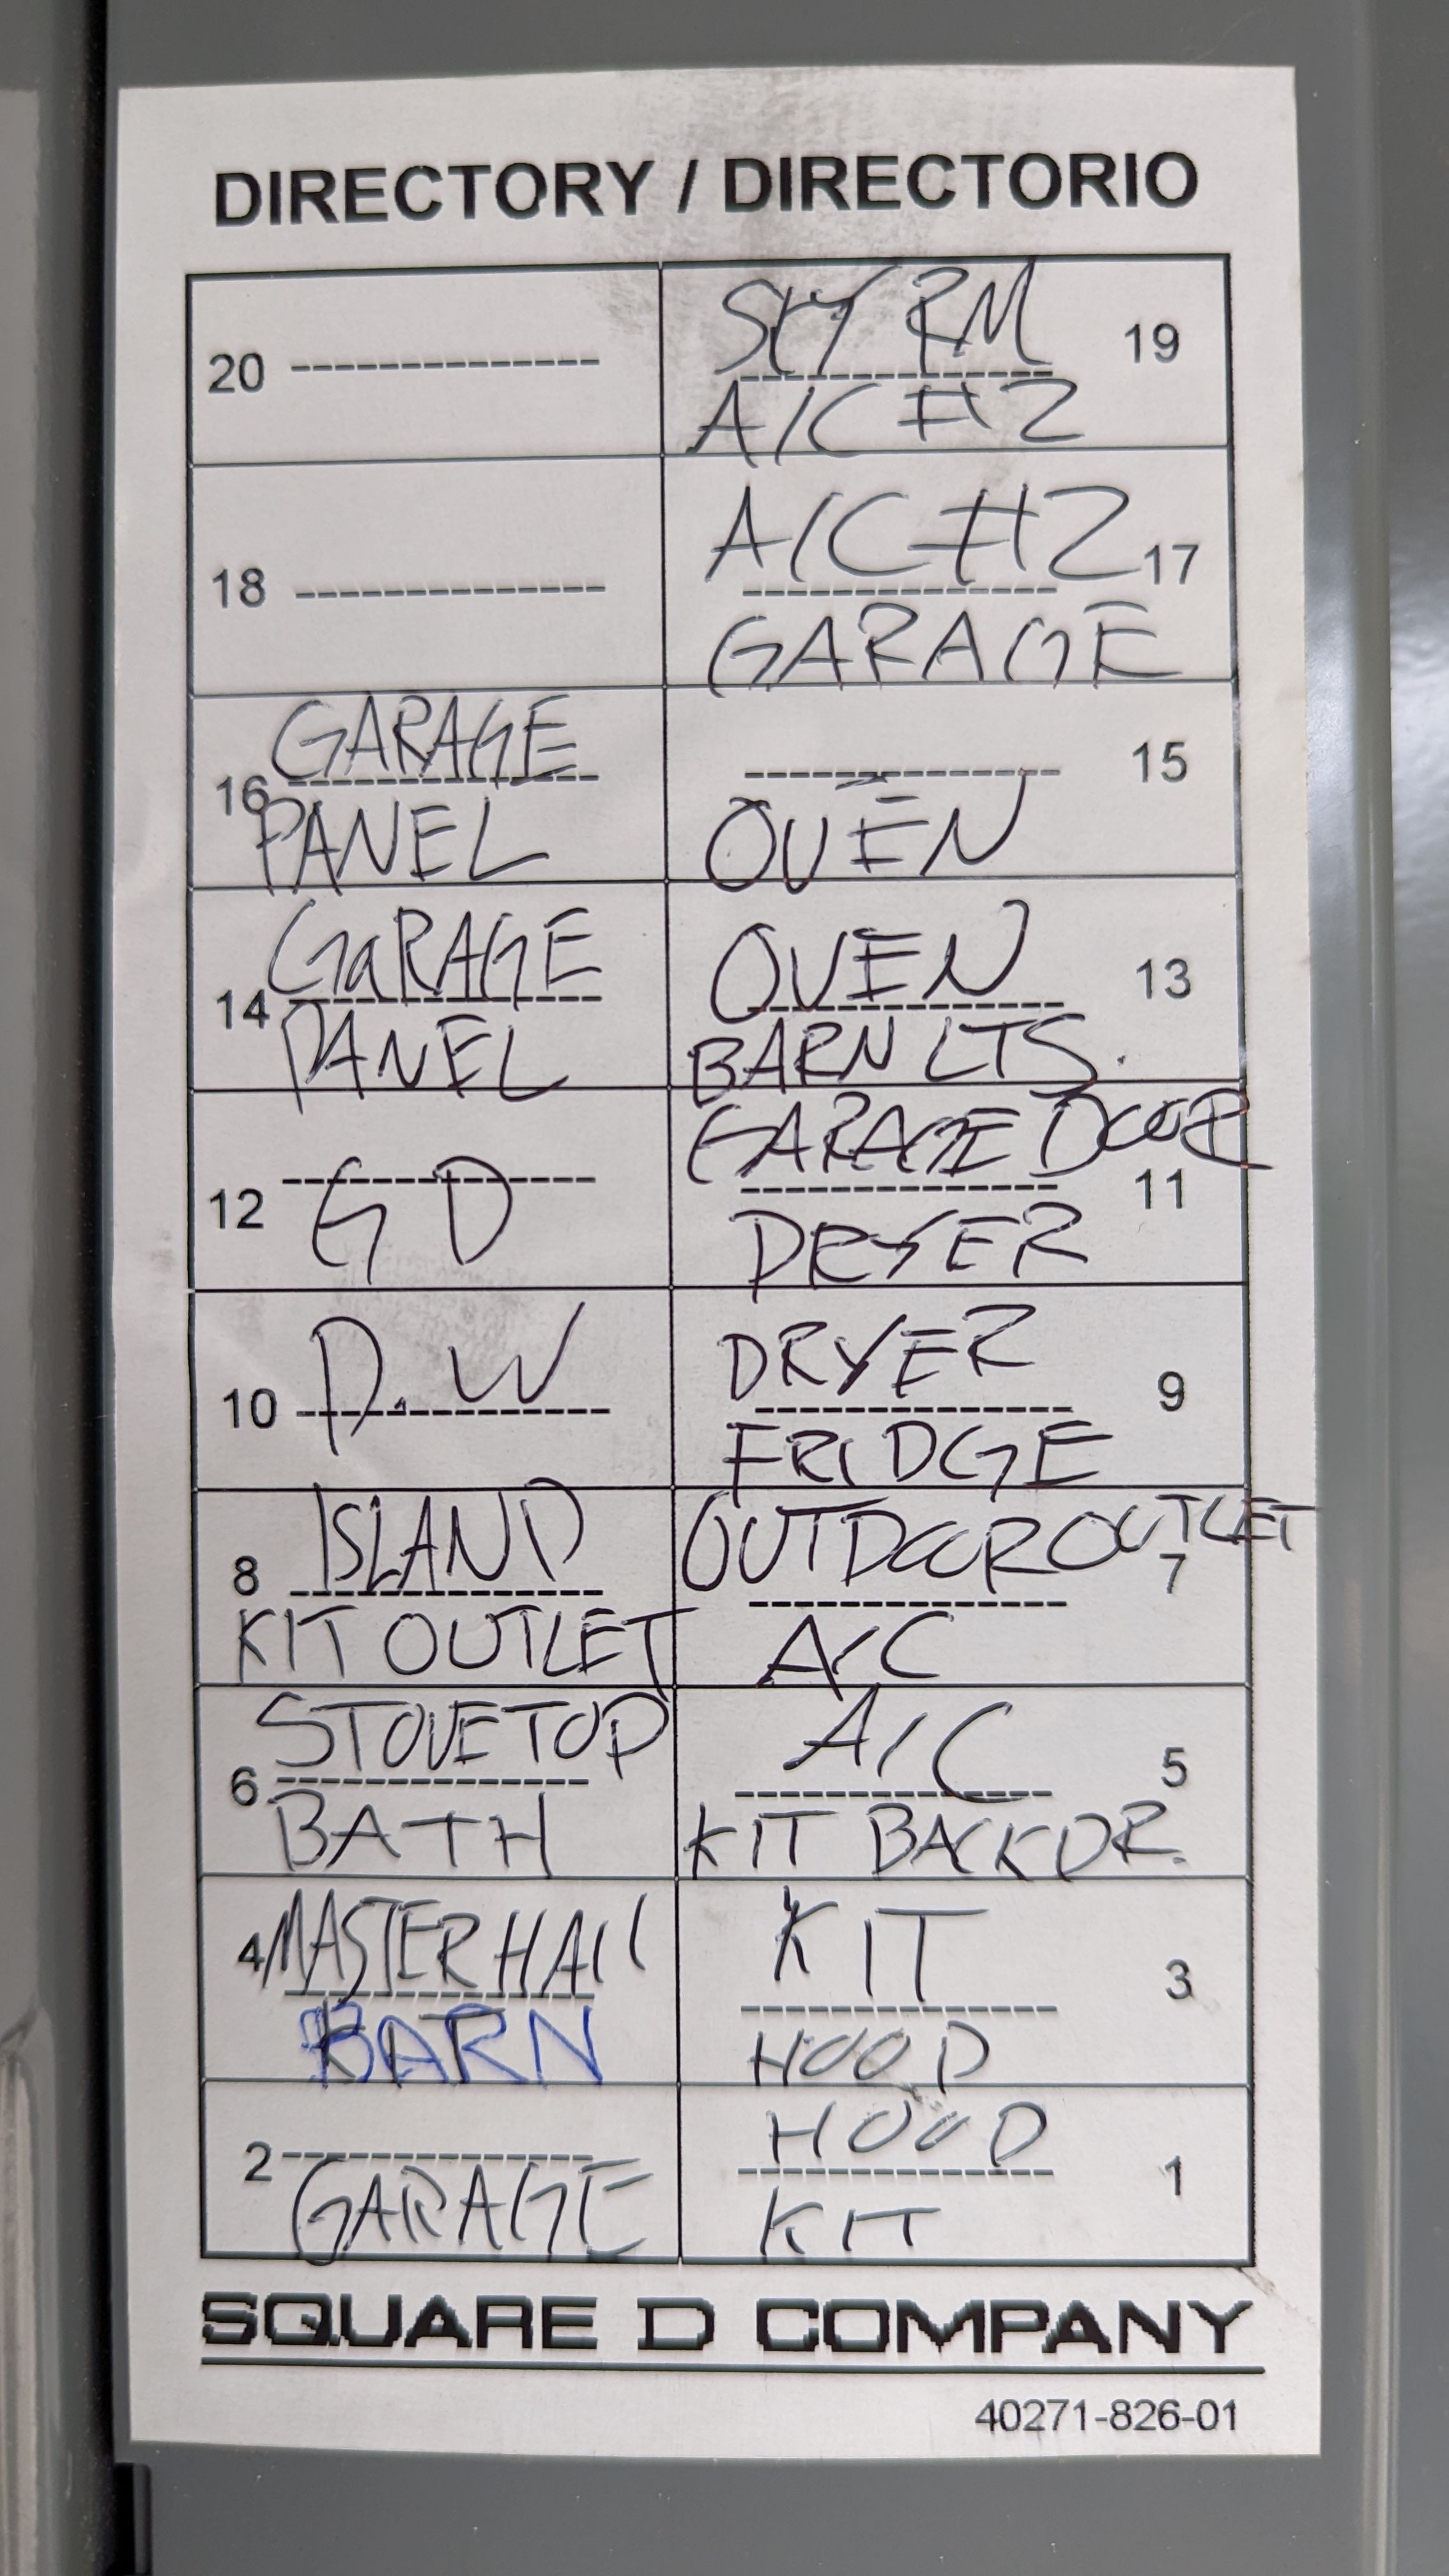 DIRECTORY / DIRECTORIO
20
SKY RM 19
A/C #2
18
A/C #2 17
GARAGE
16 GARAGE
PANEL
15
OVEN
14 GaRAGE
PANEL
OVEN 13
BARN LTS.
12 GD
GARAGE DOOR 11
DRYER
10 D.W
DRYER 9
FRIDGE
8 ISLAND
KIT OUTLET
OUTDOOR OUTLET 7
A/C
6 STOVETOP
BATH
A/C 5
KIT BACKDR.
4 MASTER HAll
BARN
KIT 3
HOOD
2 GARAGE
HOOD 1
KIT
SQUARE D COMPANY
40271-826-01